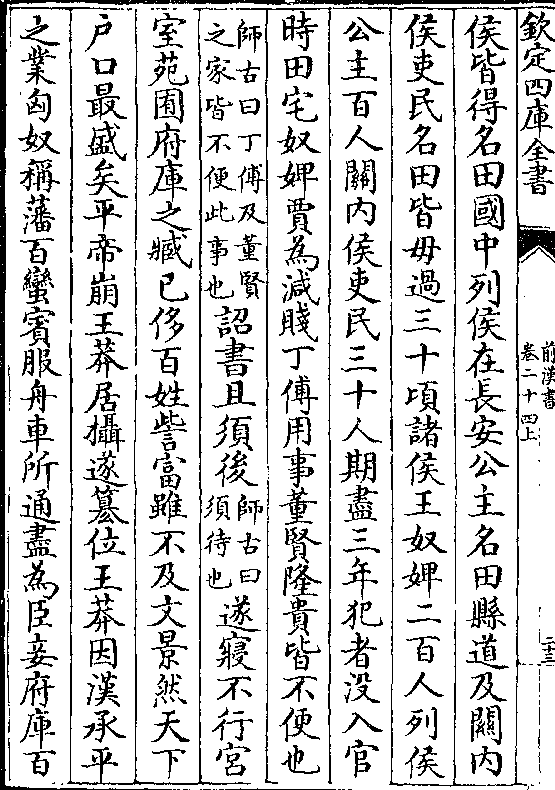 欽定四庫全書
前漢書
卷二十四上
二十三
侯皆得名田國中列侯在長安公主名田縣道及關内
侯吏民名田皆毋過三十頃諸侯王奴婢二百人列侯
公主百人關内侯吏民三十人期盡三年犯者没入官
時田宅奴婢賈為減賤丁傅用事董賢隆貴皆不便也
師古曰丁傅及董賢
之家皆不便此事也
詔書且須後
師古曰
須待也
遂寢不行宮
室苑囿府庫之臧已侈百姓訾富雖不及文景然天下
户口最盛矣平帝崩王莽居攝遂簒位王莽因漢承平
之業匈奴稱藩百蠻賓服舟車所通盡為臣妾府庫百